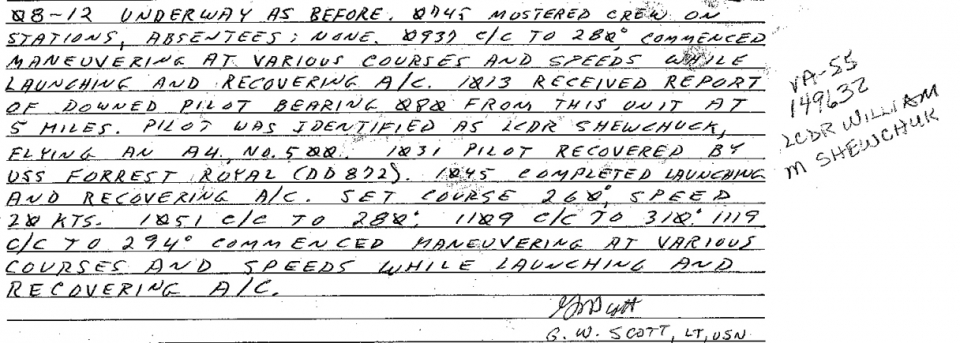 08-12 UNDERWAY AS BEFORE. 0745 MUSTERED CREW ON
STATIONS, ABSENTEES: NONE. 0937 C/C TO 280° COMMENCED
MANEUVERING AT VARIOUS COURSES AND SPEEDS WHILE
LAUNCHING AND RECOVERING A/C. 1013 RECEIVED REPORT
OF DOWNED PILOT BEARING 080 FROM THIS UNIT AT
5 MILES. PILOT WAS IDENTIFIED AS LCDR SHEWCHUCK,
FLYING AN A4, NO. 500. 1031 PILOT RECOVERED BY
USS FORREST ROYAL (DD872). 1045 COMPLETED LAUNCHING
AND RECOVERING A/C. SET COURSE 260°, SPEED
20 KTS. 1051 C/C TO 280°. 1109 C/C TO 310°. 1119
C/C TO 294° COMMENCED MANEUVERING AT VARIOUS
COURSES AND SPEEDS WHILE LAUNCHING AND
RECOVERING A/C.
G. W. SCOTT, LT, USN
VA-55
149632
LCDR WILLIAM
M SHEWCHUK